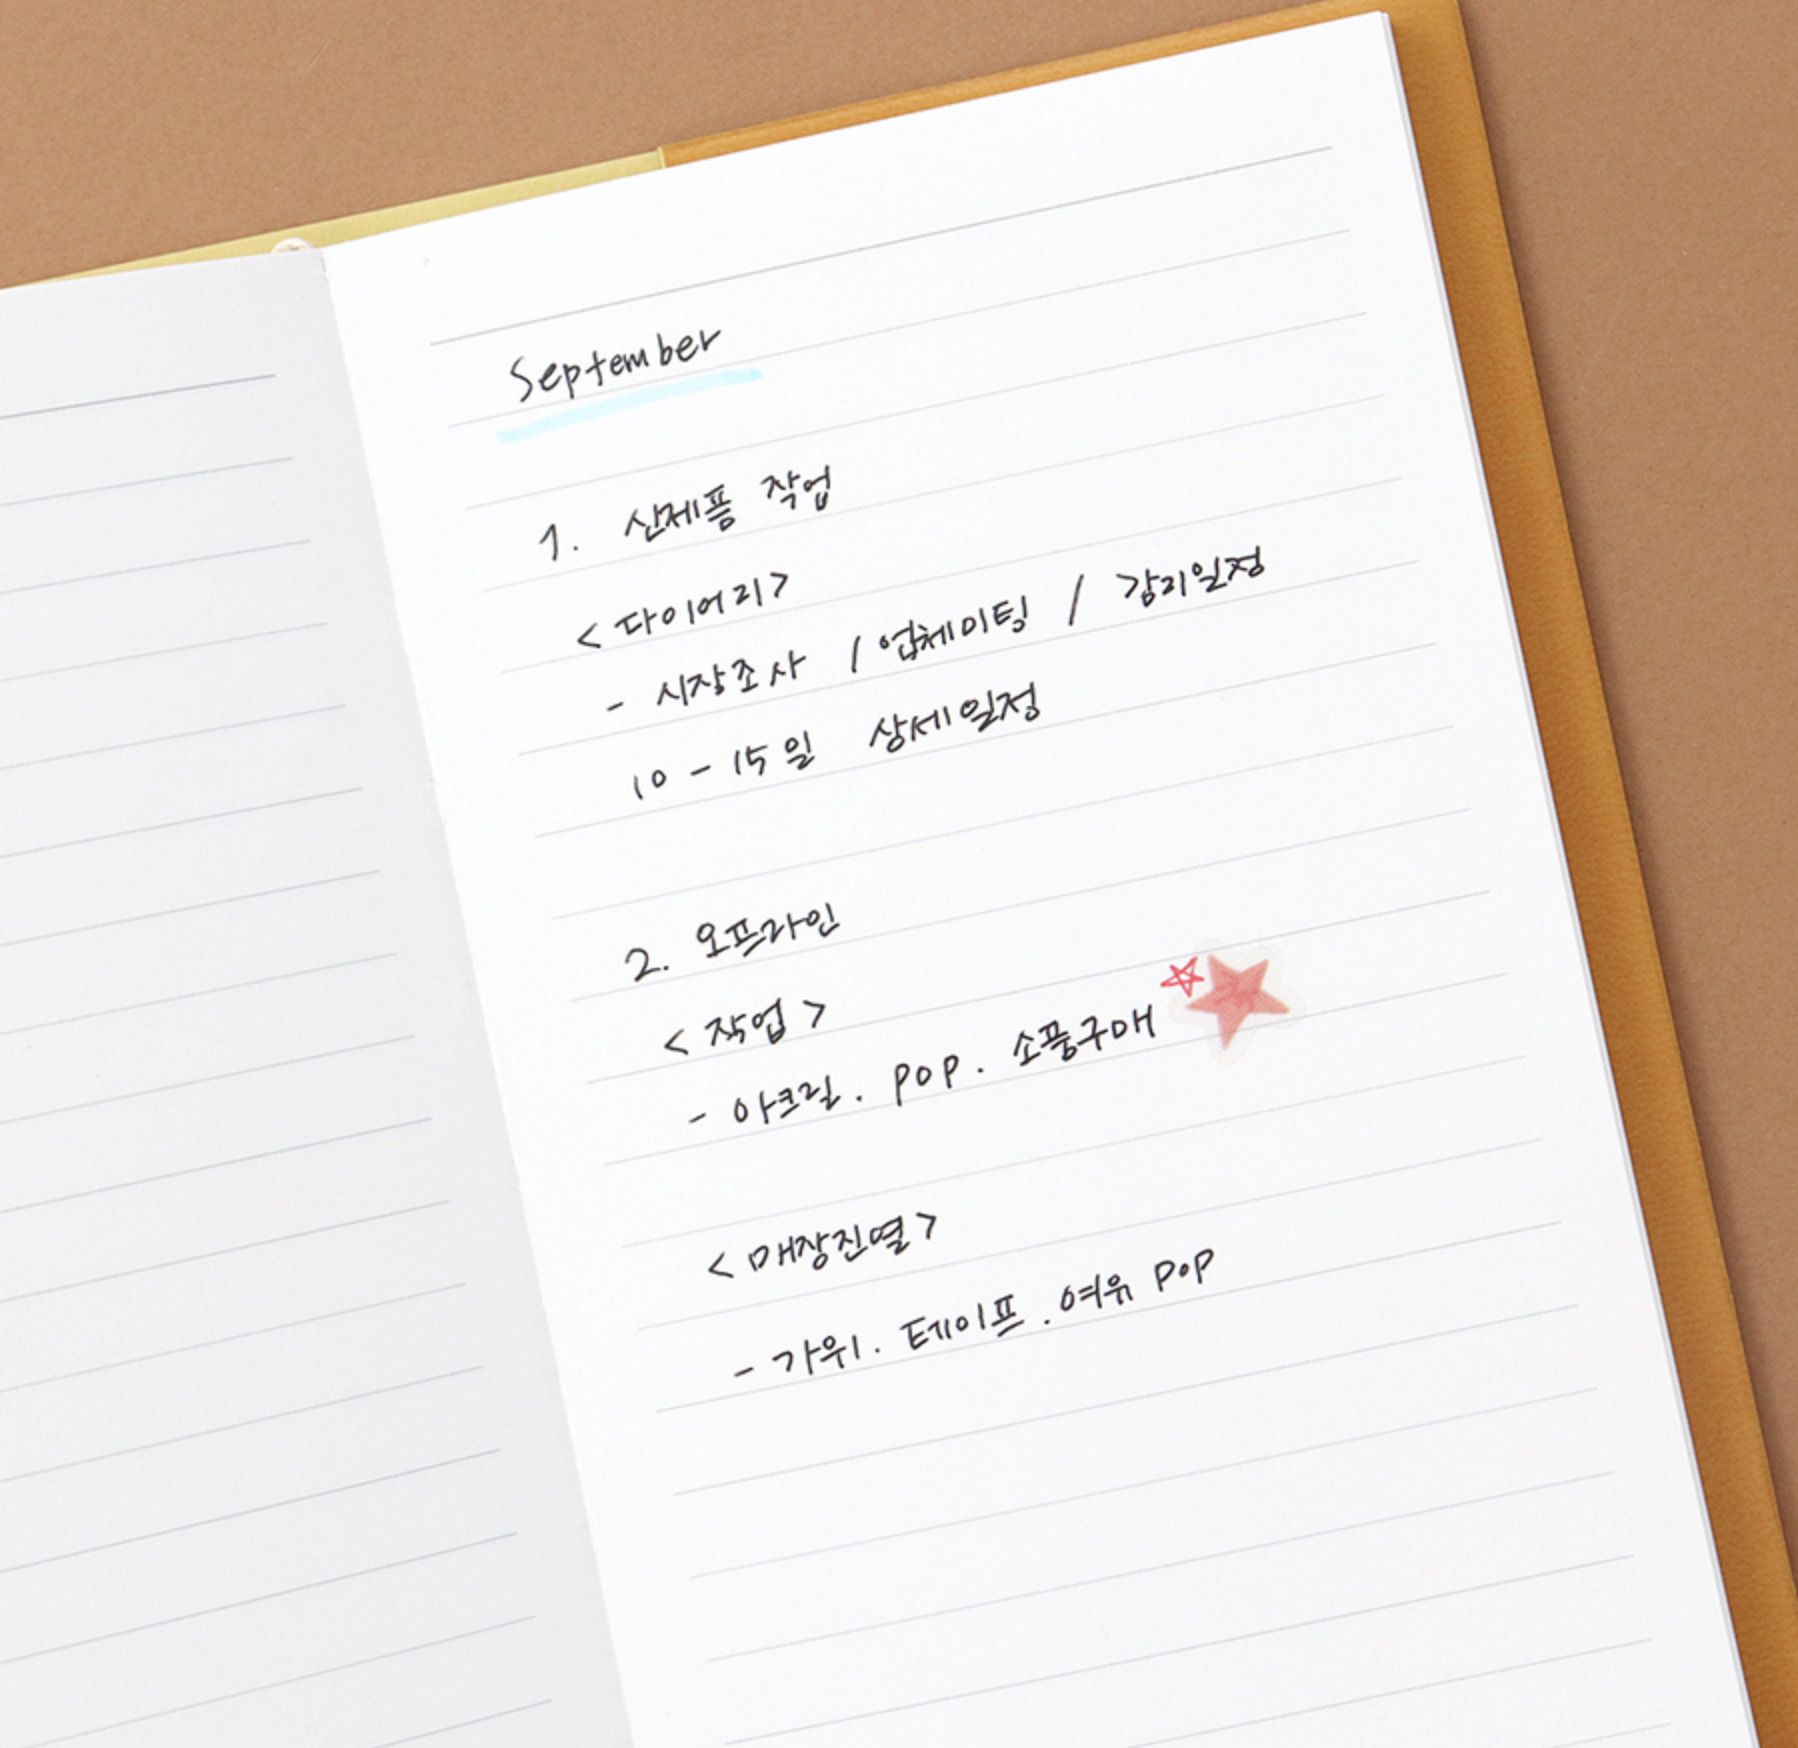 September
1. 신제품 작업
<다이어리>
- 시장조사 / 업체미팅 / 감리일정
10 - 15일 상세일정
2. 오프라인
<작업>
- 아크릴. pop. 소품구매
<매장진열>
- 가위. 테이프. 여유 pop